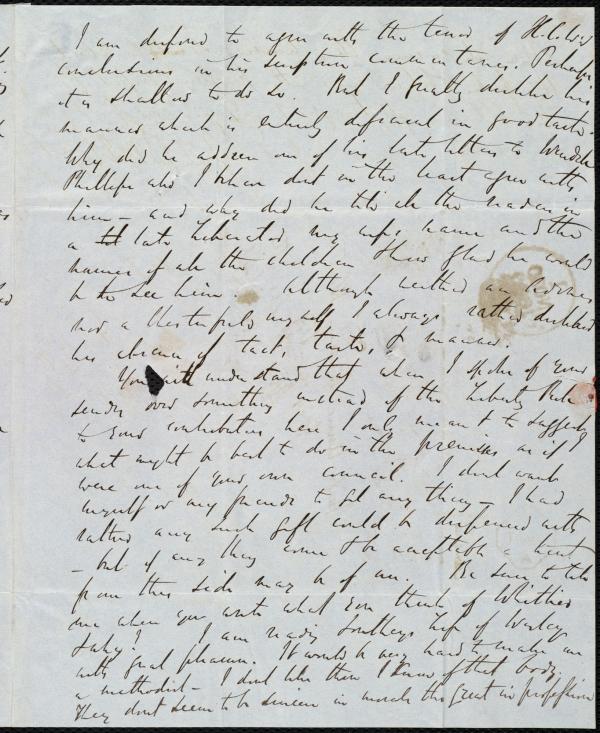 I am disposed to agree with the tenor of H. C. W's
conclusions in his scripture commentaries. Perhaps
it is shallow to do so. But I greatly dislike his
manner which is entirely deficient in good taste.
Why did he address one of his late letters to Wendell
Phillips who I know dont in the least agree with
him - and why did he tell all the readers in
a late Liberator my wife's name and the
names of all the children & how glad he would
be to see him. Although neither an
nor a Chesterfield myself I always rather disliked
his absence of tact, taste, & manner.
You will understand that when I spoke of your
sending over something instead of the Liberty Bell
to your contributors here I only meant to suggest
what might be best to do in the premises as if I
were one of your own council. I dont want
myself or my friends to get any thing - I had
rather any such gift could be dispensed with
- but if any thing would be acceptable a hint
from this side may be of use. Be sure to tell
me when you write what you think of Whittier
I am reading Southeys Life of Wesley
with great pleasure. It would be very hard to make me
a methodist - I dont like them I know of that body
They dont seem to be sincere in morals tho great in profession